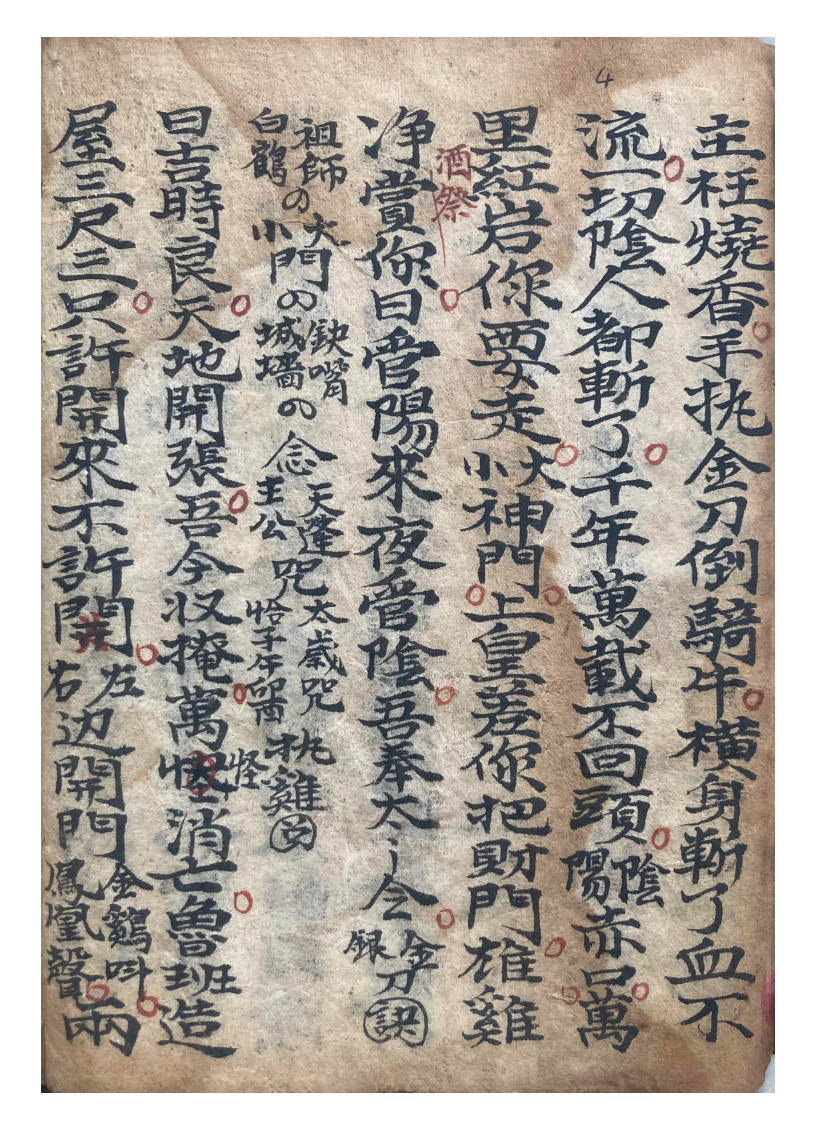 4
主枉燒香手执金刀倒騎牛橫身斬了血不
流一切陰人都斬了千年萬載不回頭陰陽赤口萬
里紅岩你要走大小神門上皇差你把財門雄雞
酒祭
净賞你日管陽來夜管陰吾奉大〻令金銀刀訣
祖師白鶴の大小門の缺嘴城墻の念天蓬主公咒太歲咒恰子午卯酉执雞
曰吉時良天地開張吾今收掩萬怪消亡魯班造
怪
屋三尺三只許開來不許關左右边開門金鷄叫鳳凰聲兩